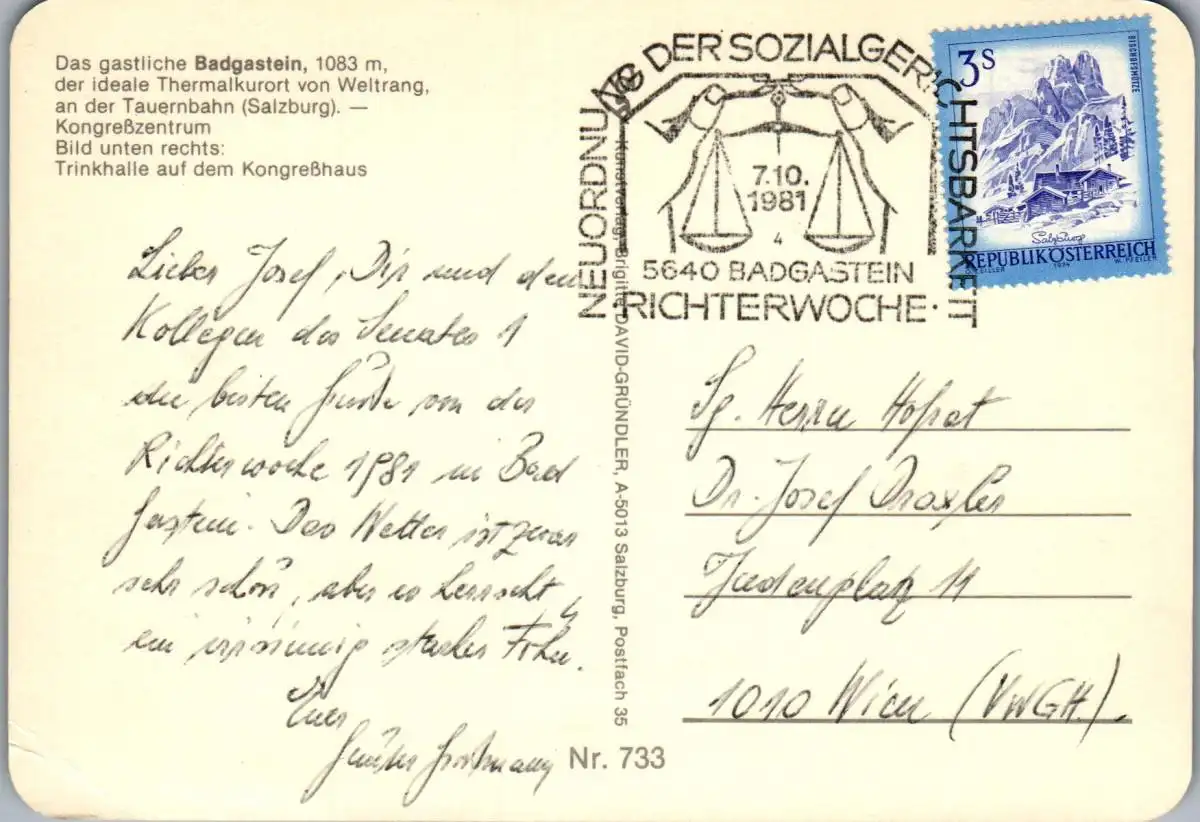 Das gastliche Badgastein, 1083 m,
der ideale Thermalkurort von Weltrang,
an der Tauernbahn (Salzburg). —
Kongreßzentrum
Bild unten rechts:
Trinkhalle auf dem Kongreßhaus
NEUORDNUNG DER SOZIALGERICHTSBARKEIT
7.10.
1981
4
5640 BADGASTEIN
·RICHTERWOCHE·
3S
BISCHOFSMÜTZE
Salzburg
REPUBLIK ÖSTERREICH
1974
W. PFEILER
Lieber Josef, Dir und den
Kollegen des Senates 1
die besten Grüße von der
Richterwoche 1981 in Bad
Gastein. Das Wetter ist zwar
sehr schön, aber es herrscht
ein irrsinnig starker Föhn.
Euer
Günter
Kunstverlag Brigitte DAVID-GRÜNDLER, A-5013 Salzburg, Postfach 35
Sg. Herrn Hofrat
Dr. Josef Draxler
Judenplatz 11
1010 Wien (VwGH).
Nr. 733